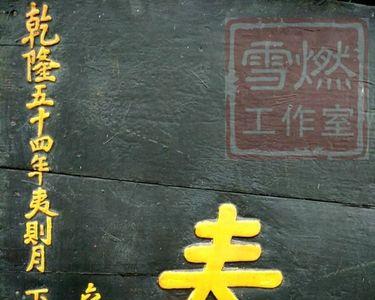 乾隆五十四年夷則月
雪燃
工作室